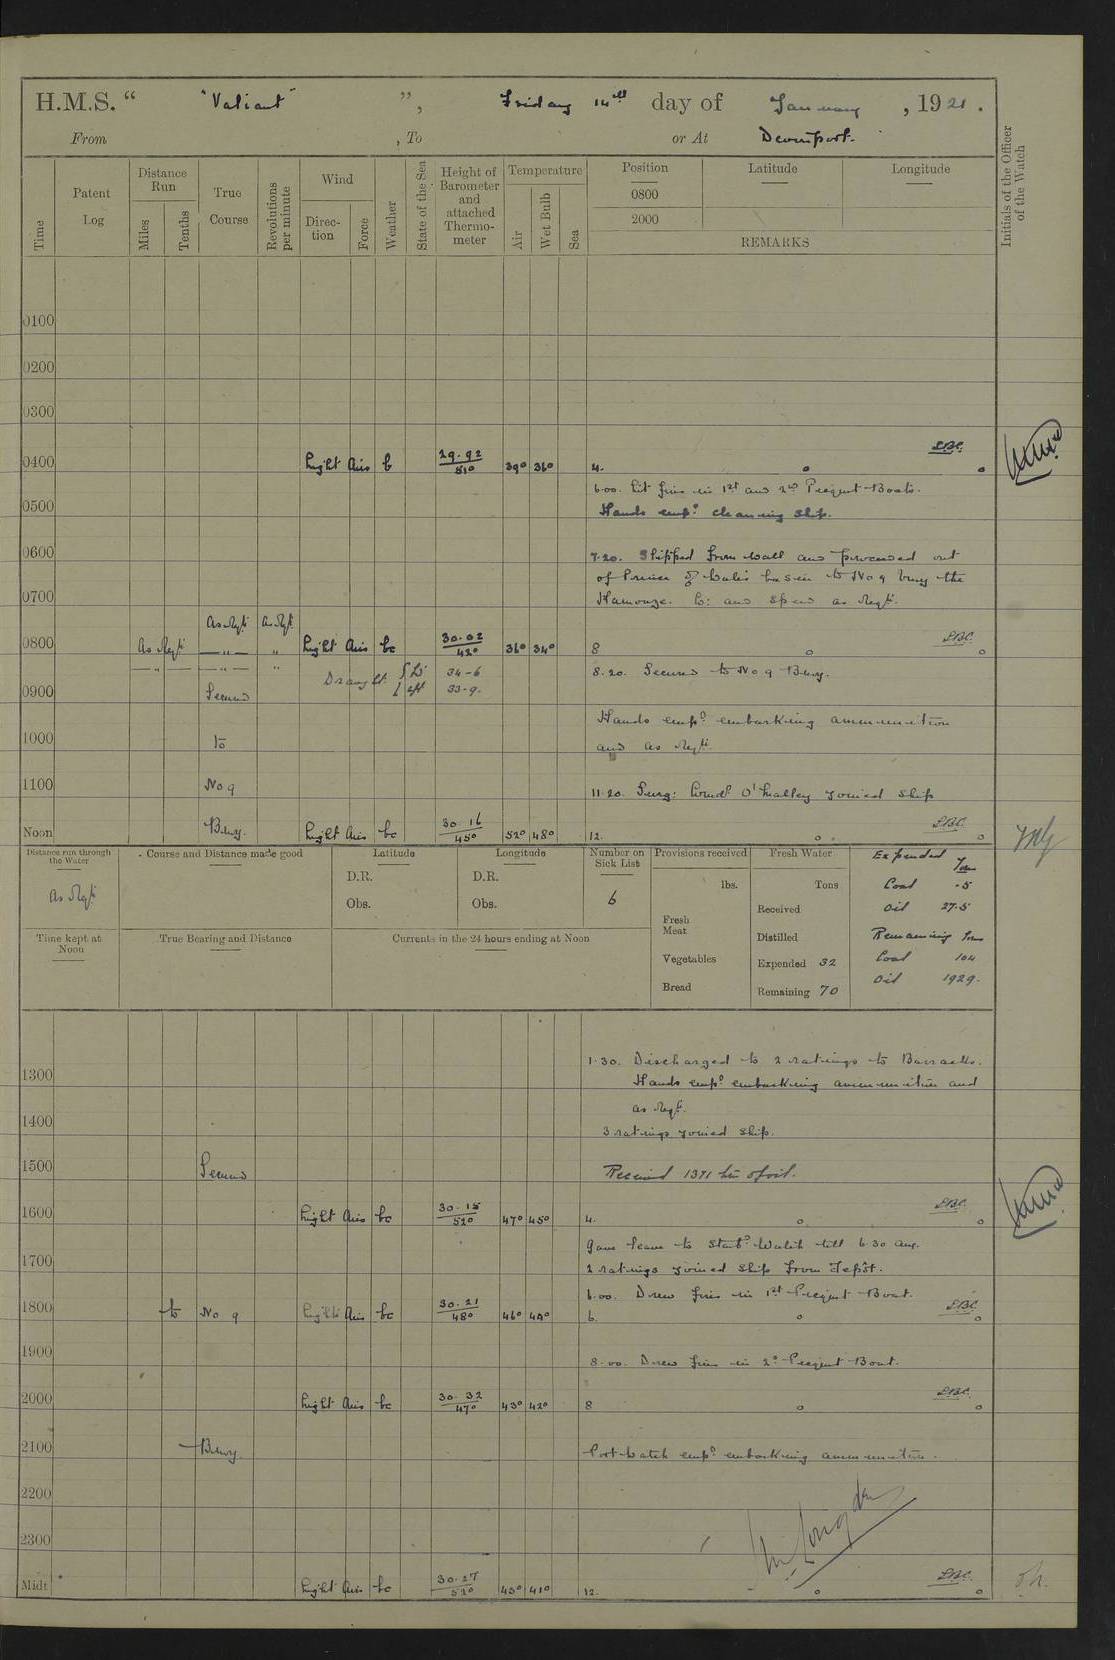 H.M.S. “ "Valiant" ”, Friday 14th day of January , 1921.
From , To or At Devonport.
Time
Patent Log
Distance Run
Miles
Tenths
True Course
Revolutions per minute
Wind
Direction
Force
Weather
State of the Sea
Height of Barometer and attached Thermometer
Temperature
Air
Wet Bulb
Sea
Position
0800
2000
Latitude
Longitude
REMARKS
Initials of the Officer of the Watch
0100
0200
0300
0400 Light Airs b 29.92 51° 39° 36° 4.
6.00. Lit fires in 1st and 2nd Picquet Boats.
0500 Hands empd cleaning ship.
0600 7.20. Slipped from wall and proceeded out
of Prince of Wales basin to No 9 buoy the
0700 Hamoaze. Co: and speed as reqte.
As Reqte As Reqte
0800 As Reqte — " — " Light Airs bc 30.02 42° 36° 34° 8
— " — — " — " Draught 34-6 8.20. Secured to No 9 Buoy.
0900 Secured aft 33-9.
Hands empd embarking ammunition
1000 to and as Reqte
1100 No 9 11.20. Surg: O'Malley joined ship
Noon Buoy. Light Airs bc 30.16 45° 52° 48° 12.
Distance run through the Water
As Reqte
Course and Distance made good
Latitude
D.R.
Obs.
Longitude
D.R.
Obs.
Number on Sick List
6
Provisions received
lbs.
Fresh Meat
Vegetables
Bread
Fresh Water
Tons
Received
Distilled
Expended 32
Remaining 70
Expended Tons
Coal .5
Oil 27.5
Remaining Tons
Coal 104
Oil 1929.
Time kept at Noon
True Bearing and Distance
Currents in the 24 hours ending at Noon
1.30. Discharged to 2 ratings to Barracks.
1300 Hands empd embarking ammunition and
as Reqte.
1400 3 ratings joined ship.
1500 Secured Received 1371 tns of oil.
1600 Light Airs bc 30.15 52° 47° 45° 4.
Gave leave to Starbd Watch till 6 30 am.
1700 2 ratings joined ship from Depôt.
6.00. Drew fires in 1st Picquet Boat.
1800 to No 9 Light Airs bc 30.21 48° 46° 44° 6.
1900 8.00 Drew fires in 2nd Picquet Boat.
2000 Light Airs bc 30.32 47° 43° 42° 8
2100 Buoy. Port Watch empd embarking ammunition.
2200
2300
Midt Light Airs bc 30.27 52° 43° 41° 12.